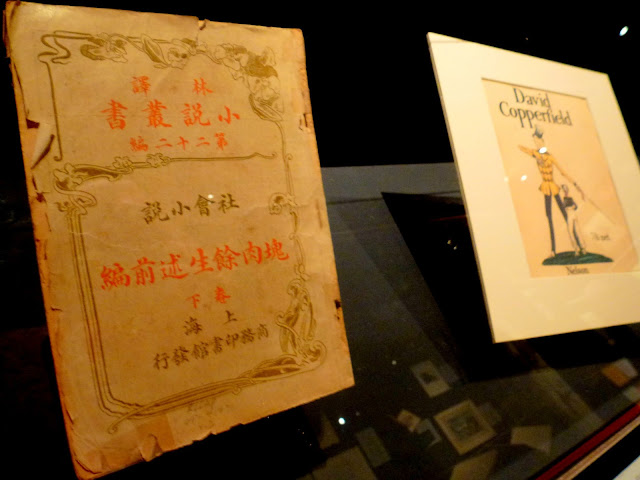 林譯
小說叢書
第二十二編
社會小說
塊肉餘生述前編
卷下
上海
商務印書館發行
David
Copperfield
net.
Nelson